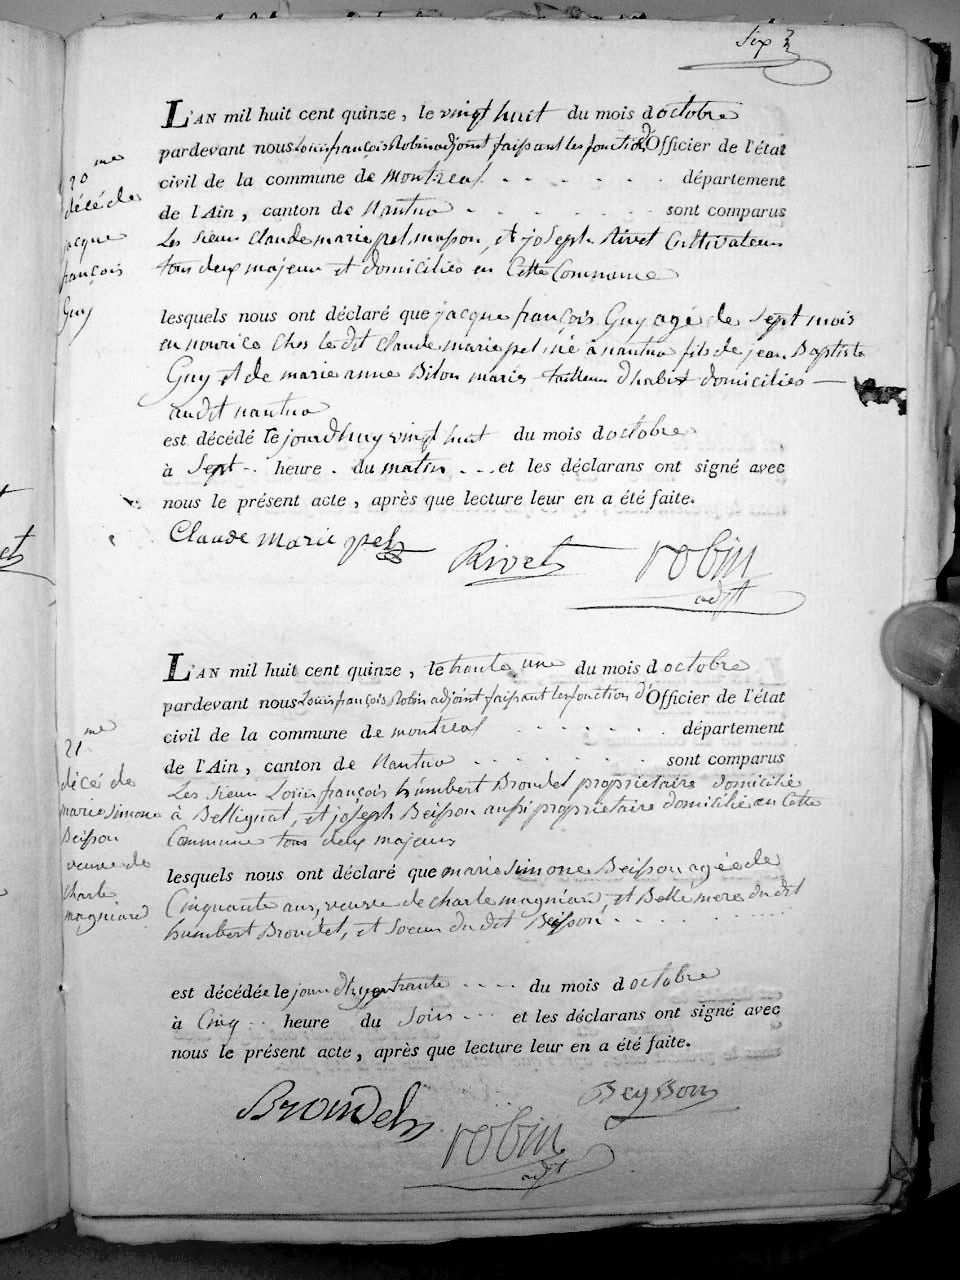 Six
L'AN mil huit cent quinze, le vingt huit du mois d octobre
pardevant nous Louis françois Robin adjoint faissant les fonction d'Officier de l'état
civil de la commune de montreal département
de l'Ain, canton de Nantua sont comparus
Les Sieurs Claude marie pel masson, et joseph Rivet Cultivateurs
tous deux majeurs et domiciliés en Cette Commune
20me
décé de
jacque
françois
Guy
lesquels nous ont déclaré que jacque françois Guy agé de Sept mois
en nourice Chés le dit Claude marie pel né à nantua fils de jean Baptiste
Guy et de marie anne Bilon mariés tailleur d'habit domiciliés
audit nantua
est décédé le jourdhuy vingt huit du mois d octobre
à Sept heure du matin et les déclarans ont signé avec
nous le présent acte, après que lecture leur en a été faite.
Claude Marie pel
Rivet
robin
adjt
L'AN mil huit cent quinze, le trente une du mois d octobre
pardevant nous Louis françois Robin adjoint faissant les fonction d'Officier de l'état
civil de la commune de montreal département
de l'Ain, canton de Nantua sont comparus
Les Sieurs Louis françois humbert Brondel proprietaire domicilié
à Bellignat, et joseph Beisson aussi proprietaire domicilié en Cette
Commune tous deux majeurs
21me
décé de
marie simone
Beisson
veuve de
Charle
magniard
lesquels nous ont déclaré que marie Simone Beisson agée de
Cinquante ans, veuve de charle magniard, et Belle mere du dit
humbert Brondel, et Soeur du dit Beisson
est décédée le jourdhuy trente du mois d octobre
à Cinq heure du Soir et les déclarans ont signé avec
nous le présent acte, après que lecture leur en a été faite.
Brondel
Beysson
robin
adjt